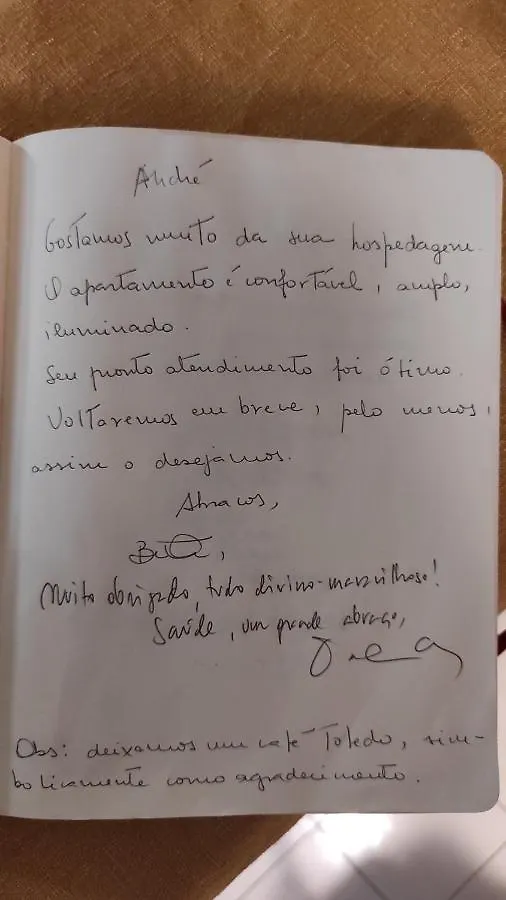 André
Gostamos muito da sua hospedagem.
O apartamento é confortável, amplo,
iluminado.
Seu pronto atendimento foi ótimo.
Voltaremos em breve, pelo menos,
assim o desejamos.
Abraços,
Muito obrigado, tudo divino-maravilhoso!
Saúde, um grande abraço,
Obs: deixamos um café Toledo, sim-
bolicamente como agradecimento.